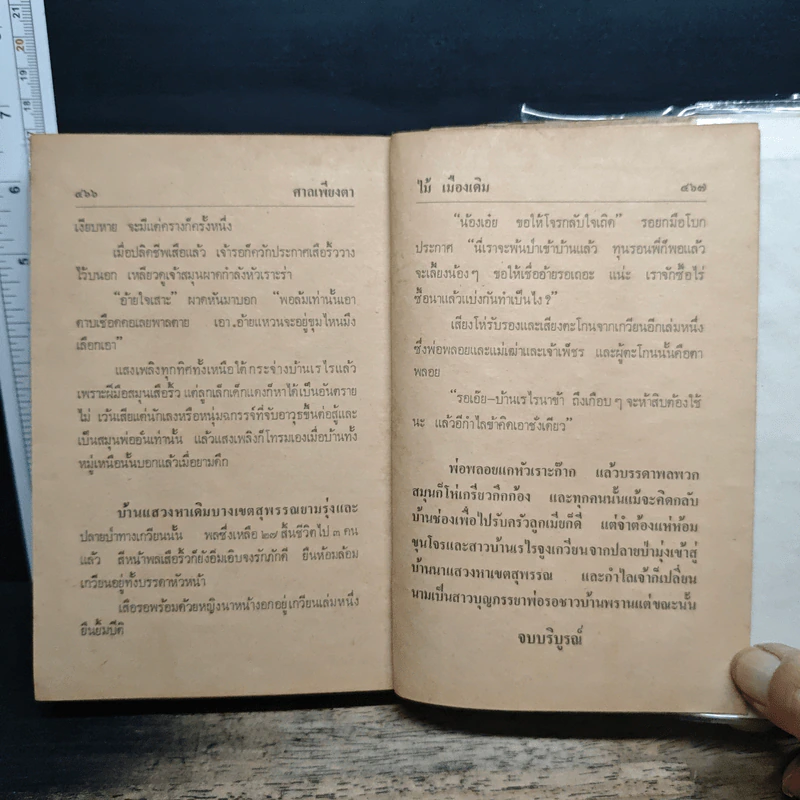 ๔๖๖ ศาลเพียงตา
เงียบหาย จะมีแต่ครางก็ครั้งหนึ่ง
เมื่อปลิดชีพเสือแล้ว เจ้ารอก็ควักประกาศเสือริ้ววาง
ไว้บนอก เหลียวดูเจ้าสมุนผาดกำลังหัวเราะร่า
“อ้ายใจเสาะ” ผาดหันมาบอก “พอล้มเท่านั้นเอา
ดาบเชือดคอเลยพาลตาย เอา อ้ายแหวนจะอยู่ขุมไหนมึง
เลือกเอา”
แสงเพลิงทุกทิศทั้งเหนือใต้กระจ่างบ้านเรไรแล้ว
เพราะฝีมือสมุนเสือริ้ว แต่ลูกเล็กเด็กแดงก็หาได้เป็นอันตราย
ไม่ เว้นเสียแต่นักเลงหรือหนุ่มฉกรรจ์ที่จับอาวุธขึ้นต่อสู้และ
เป็นสมุนพ่ออ้นเท่านั้น แล้วแสงเพลิงก็โทรมเองเมื่อบ้านทั้ง
หมู่เหนือนั้นบอกแล้วเมื่อยามดึก
บ้านแสวงหาเดิมบางเขตสุพรรณยามรุ่งและ
ปลายป่าทางเกวียนนั้น พลซึ่งเหลือ ๒๗ สิ้นชีวิตไป ๓ คน
แล้ว สีหน้าพลเสือริ้วก็ยังยิ้มเอิบจงรักภักดี ยืนห้อมล้อม
เกวียนอยู่ทั้งบรรดาหัวหน้า
เสือรอพร้อมด้วยหญิงนาหน้างอกอยู่เกวียนเล่มหนึ่ง
ยืนยิ้มปีติ
ไม้ เมืองเดิม ๔๖๗
“น้องเอ๋ย ขอให้โจรกลับใจเถิด” รอยกมือโบก
ประกาศ “นี่เราจะพ้นป่าเข้าบ้านแล้ว ทุนรอนพี่ก็พอแล้ว
จะเลี้ยงน้องๆ ขอให้เชื่ออ้ายรอเถอะ แน่ะ เราจักซื้อไร่
ซื้อนาแล้วแบ่งกันทำเป็นไง?”
เสียงโห่รับรองและเสียงตะโกนจากเกวียนอีกเล่มหนึ่ง
ซึ่งพ่อพลอยและแม่เฒ่าและเจ้าเพ็ชร และผู้ตะโกนนั้นคือตา
พลอย
“รอเอ๊ย-บ้านเรไรนาข้า ถึงเกือบๆ จะห้าสิบต้องใช้
นะ แล้วอีกำไลข้าคิดเอาชั่งเดียว”
พ่อพลอยแกหัวเราะก๊าก แล้วบรรดาพลพวก
สมุนก็โห่เกรียวกึกก้อง และทุกคนนั้นแม้จะคิดกลับ
บ้านช่องเพื่อไปรับครัวลูกเมียก็ดี แต่จำต้องแห่ห้อม
ขุนโจรและสาวบ้านเรไรจูงเกวียนจากปลายป่ามุ่งเข้าสู่
บ้านนาแสวงหาเขตสุพรรณ และกำไลเจ้าก็เปลี่ยน
นามเป็นสาวบุญภรรยาพ่อรอชาวบ้านพรานแต่ขณะนั้น
จบบริบูรณ์